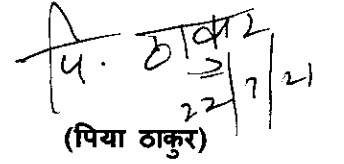 पि. ठाकुर
22/7/21
(पिया ठाकुर)